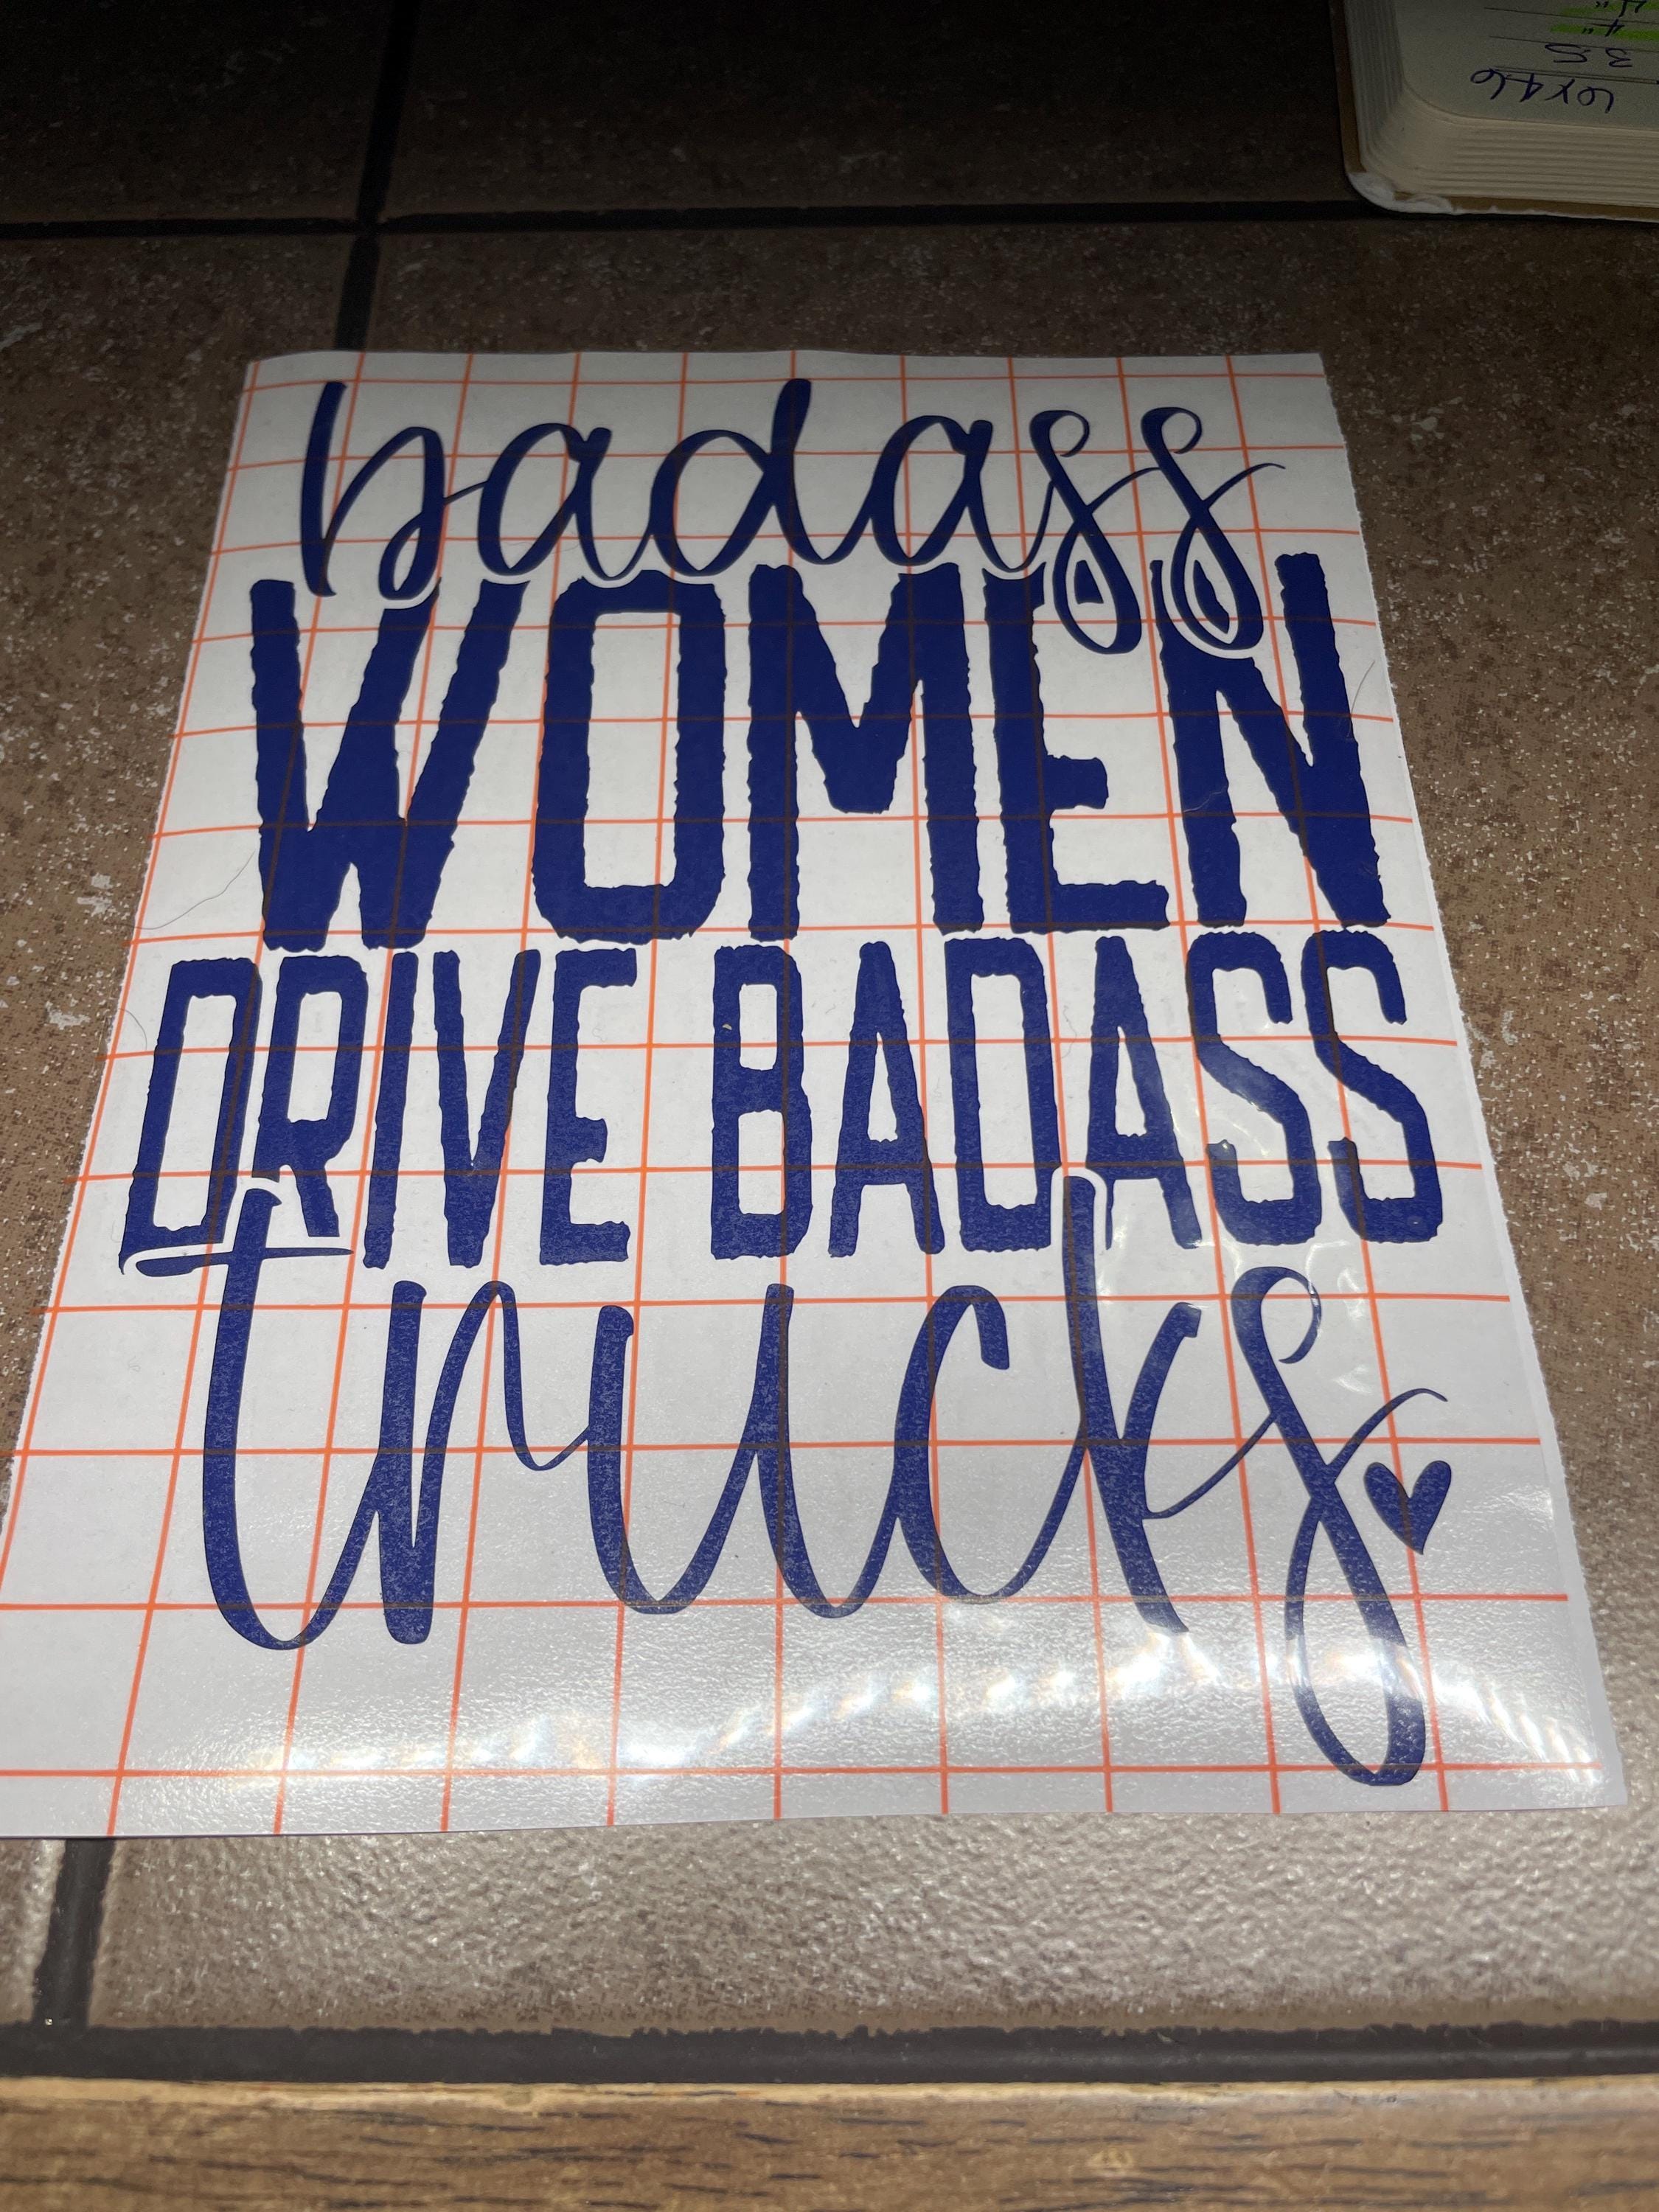 badass
WOMEN
DRIVE BADASS
trucks
4"
3.5